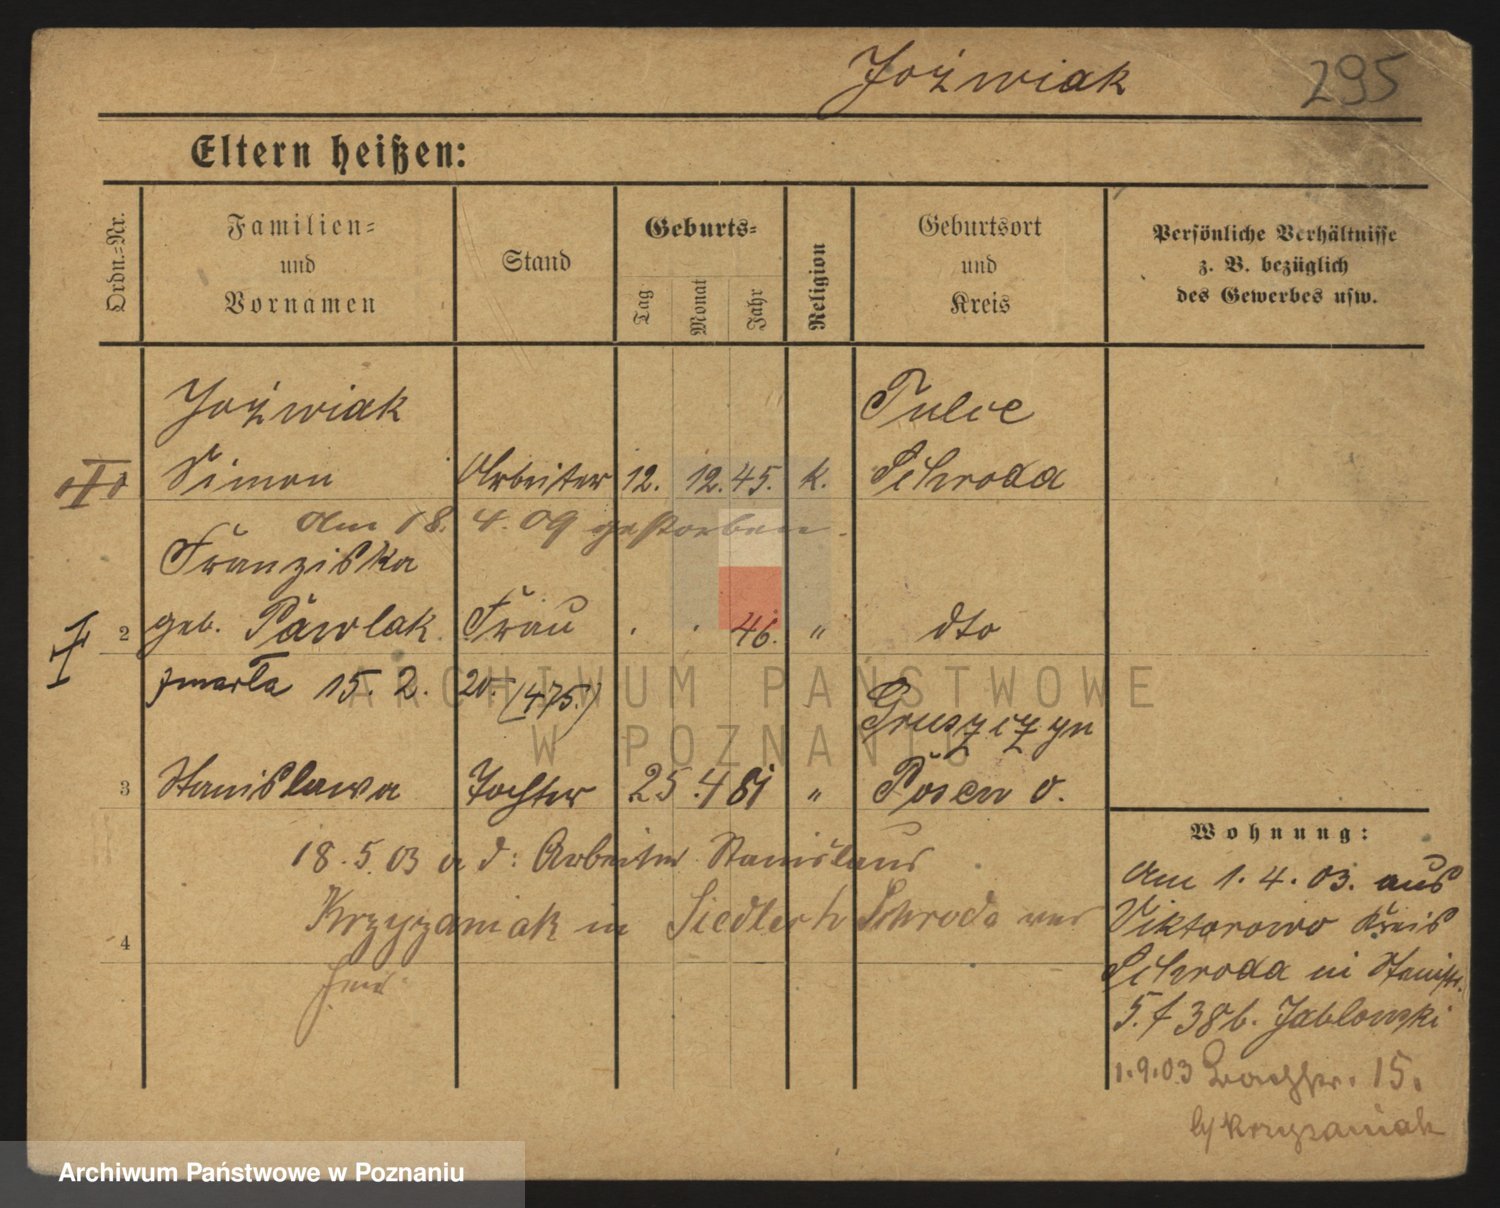 Joźwiak 295
Eltern heißen:
Ordn.=Nr.
Familien=
und
Vornamen
Stand
Geburts=
Tag
Monat
Jahr
Religion
Geburtsort
und
Kreis
Persönliche Verhältnisse
z. B. bezüglich
des Gewerbes usw.
Joźwiak Tulce
Simon Arbeiter 12. 12. 45. k. Schroda
Am 18. 4. 09 gestorben.
Franziska
2 geb. Pawlak Frau . . 46. " dto
zmarła 15. 2. 20. (475.)
Gruszczyn
3 Stanislawa Tochter 25. 4 81 " Posen O.
18. 5. 03 a d: Arbeiter Stanislaus
Krzyzaniak in Siedlec Schroda
4
Wohnung:
Am 1. 4. 03. aus
Viktorowo Kreis
Schroda in
38b. Jablonski
1. 9. 03 15.
b/ Krzyzaniak
ARCHIWUM PAŃSTWOWE
W POZNANIU
Archiwum Państwowe w Poznaniu